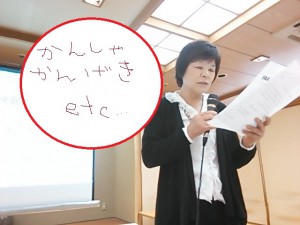 かんしゃ
かんげき
etc...